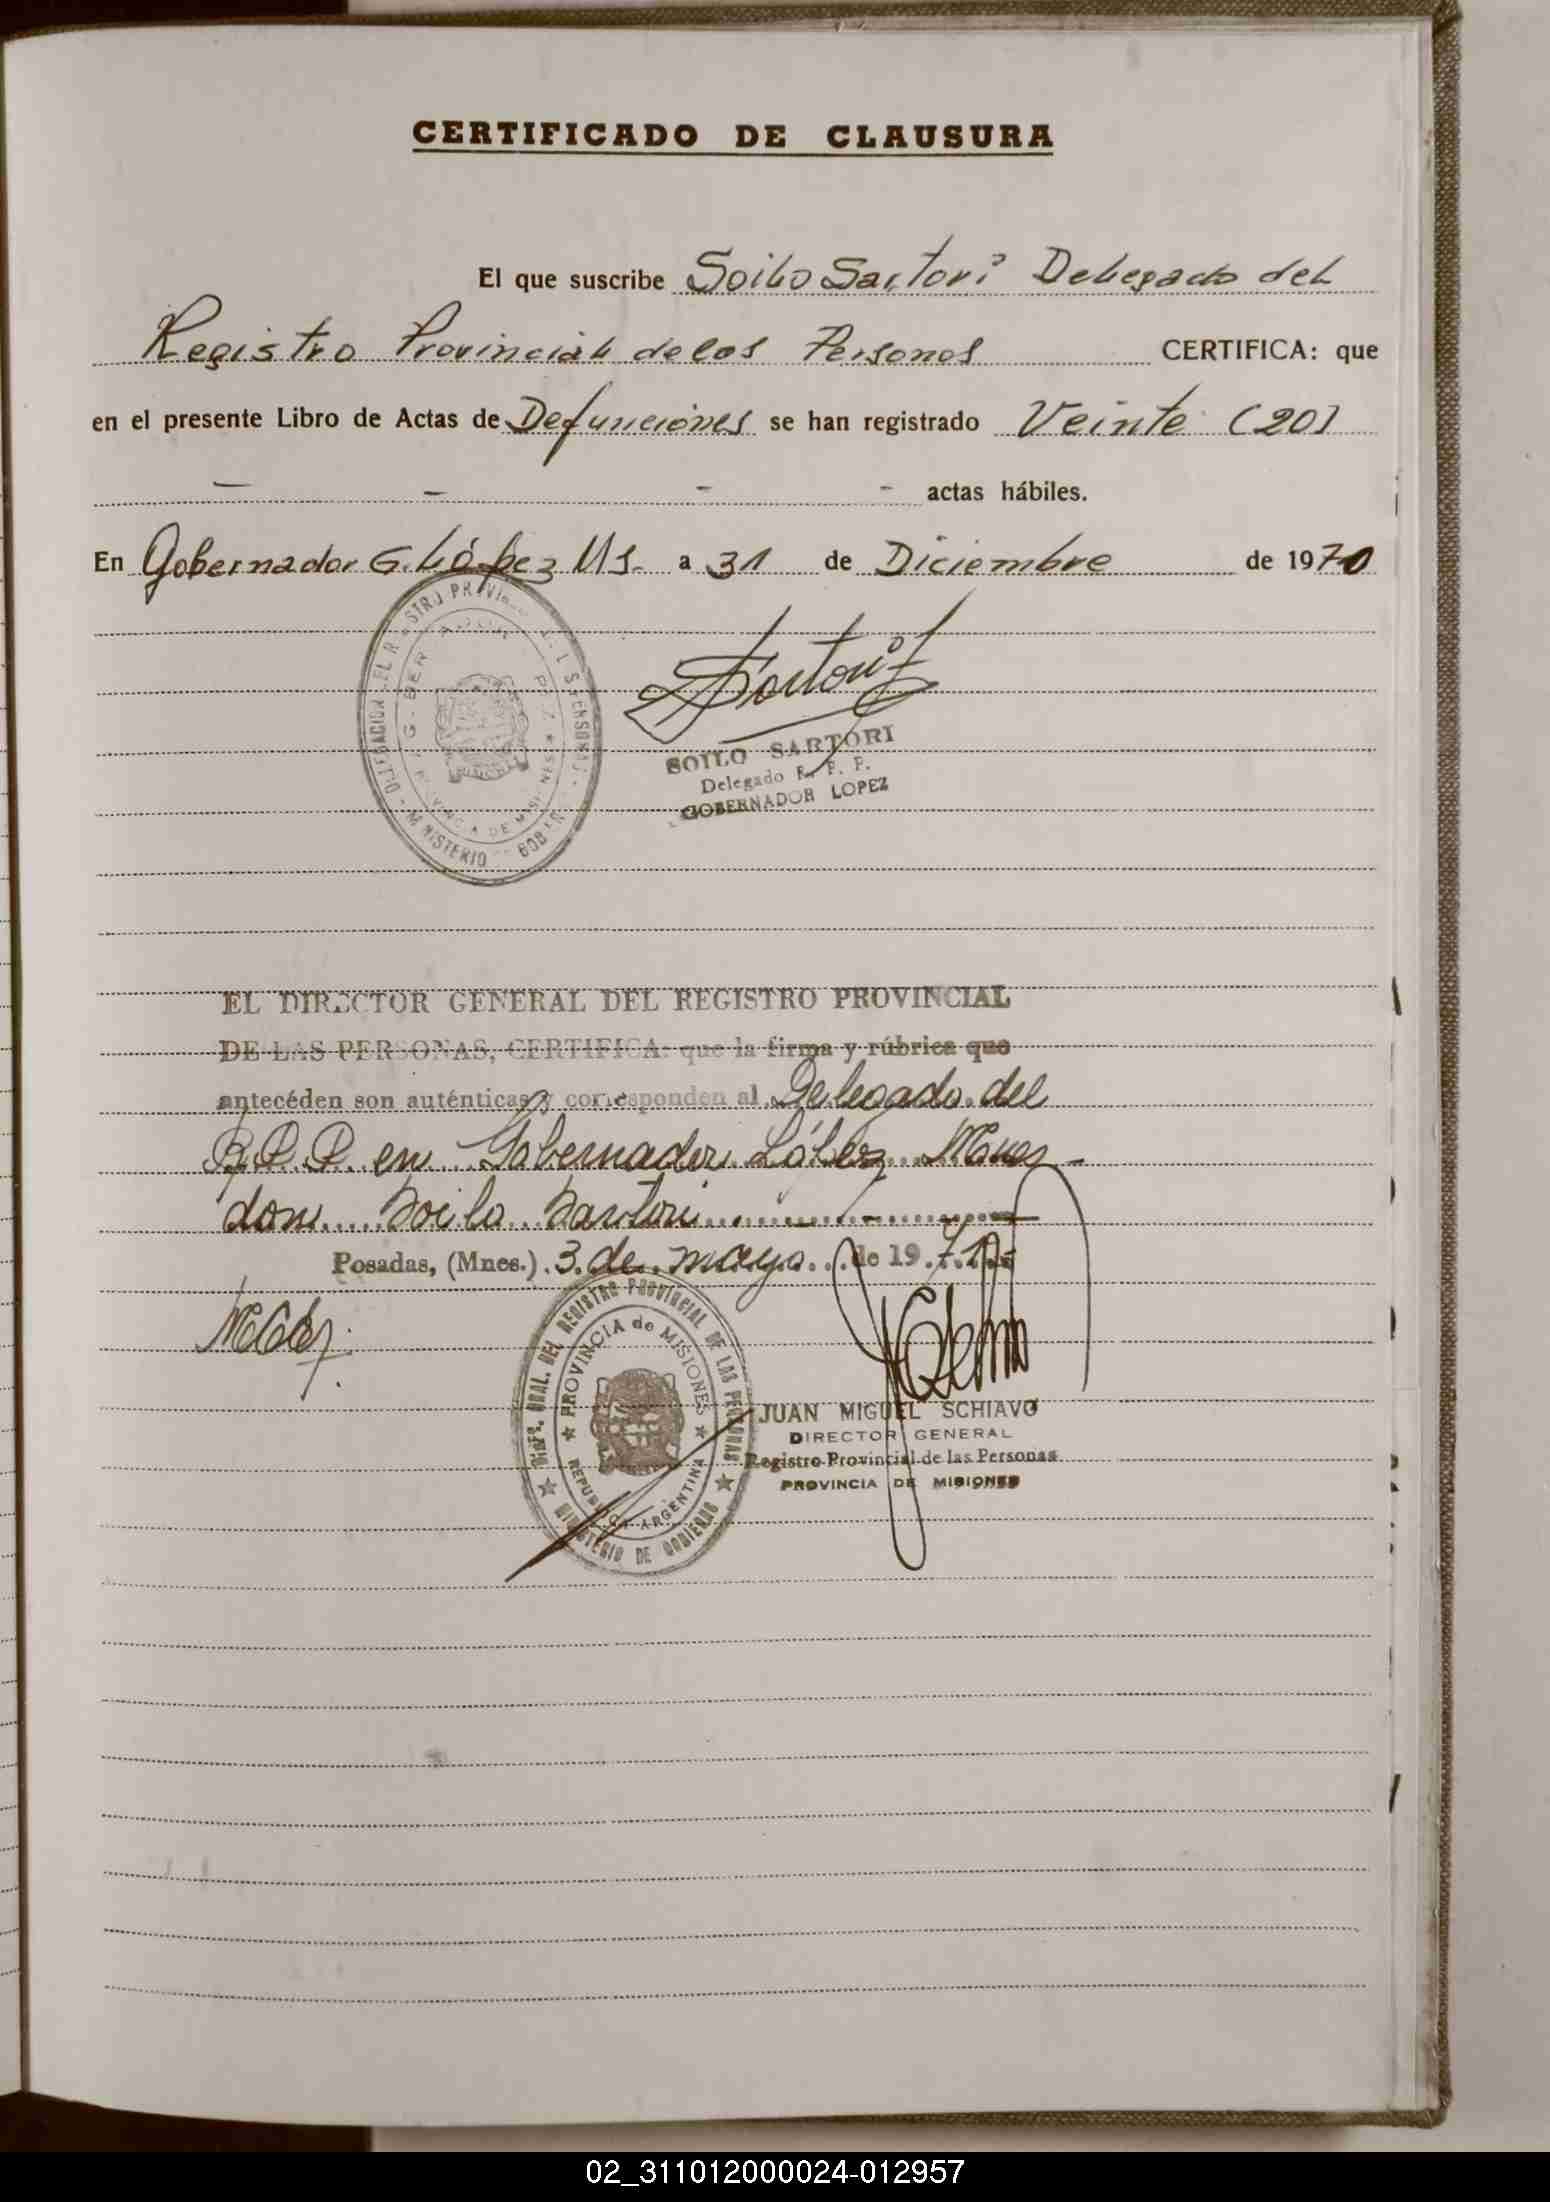 CERTIFICADO DE CLAUSURA
El que suscribe Soilo Sartori Delegado del
Registro Provincial de las Personas CERTIFICA: que
en el presente Libro de Actas de Defunciones se han registrado Veinte (20)
— — — — actas hábiles.
En Gobernador G. López Ms. a 31 de Diciembre de 1970
Sartori
SOILO SARTORI
Delegado R. P. P.
GOBERNADOR LOPEZ
DELEGACION DEL REGISTRO PROVINCIAL DE LAS PERSONAS - MINISTERIO DE GOBIERNO
PROVINCIA DE MISIONES
EL DIRECTOR GENERAL DEL REGISTRO PROVINCIAL
DE LAS PERSONAS, CERTIFICA: que la firma y rúbrica que
antecéden son auténticas y corresponden al Delegado del
R.P.P. en Gobernador López Mnes -
don Soilo Sartori
Posadas, (Mnes.) 3 de mayo de 1971.-
DIREC. GRAL. DEL REGISTRO PROVINCIAL DE LAS PERSONAS ★ MINISTERIO DE GOBIERNO ★
★ PROVINCIA de MISIONES ★ REPUBLICA ARGENTINA
JUAN MIGUEL SCHIAVO
DIRECTOR GENERAL
Registro Provincial de las Personas
PROVINCIA DE MISIONES
02_311012000024-012957